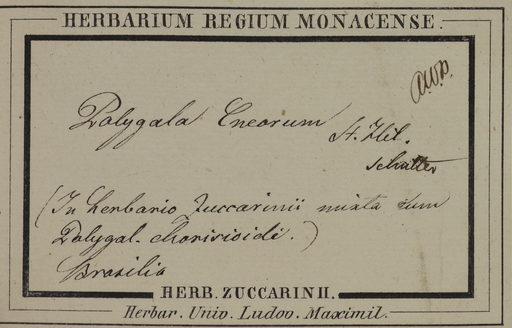 HERBARIUM REGIUM MONACENSE.
A.W.B.
Polygala Cneorum St. Hil.
(In herbario Zuccarinii mixta cum
Polygal. chorisioidi.)
Brasilia
HERB. ZUCCARINII.
Herbar. Univ. Ludov. Maximil.